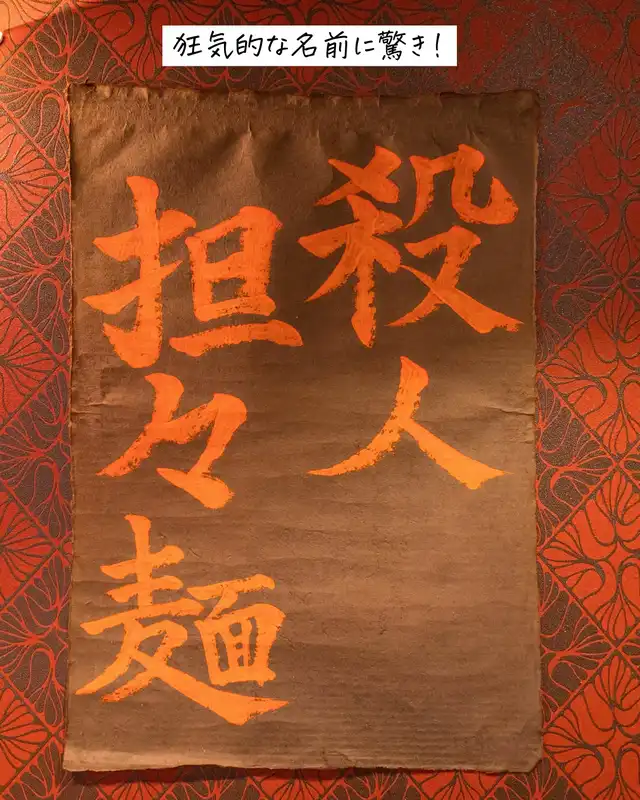 狂気的な名前に驚き!
殺人
担々麺